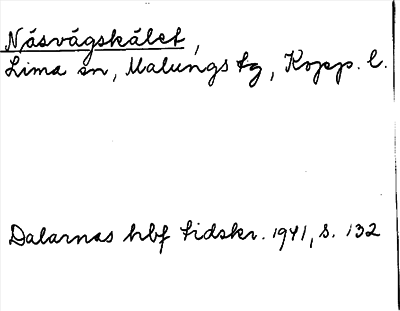 Näsvägskälet,
Lima sn, Malungs tg, Kopp. l.
Dalarnas hbf tidskr. 1941, s. 132